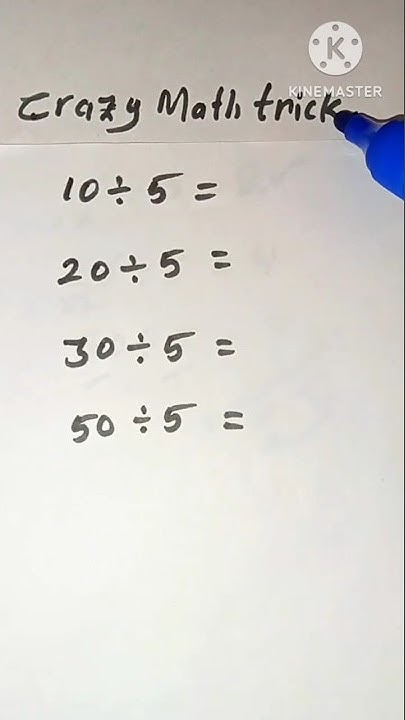 K
KINEMASTER
Crazy Math trick
10 ÷ 5 =
20 ÷ 5 =
30 ÷ 5 =
50 ÷ 5 =